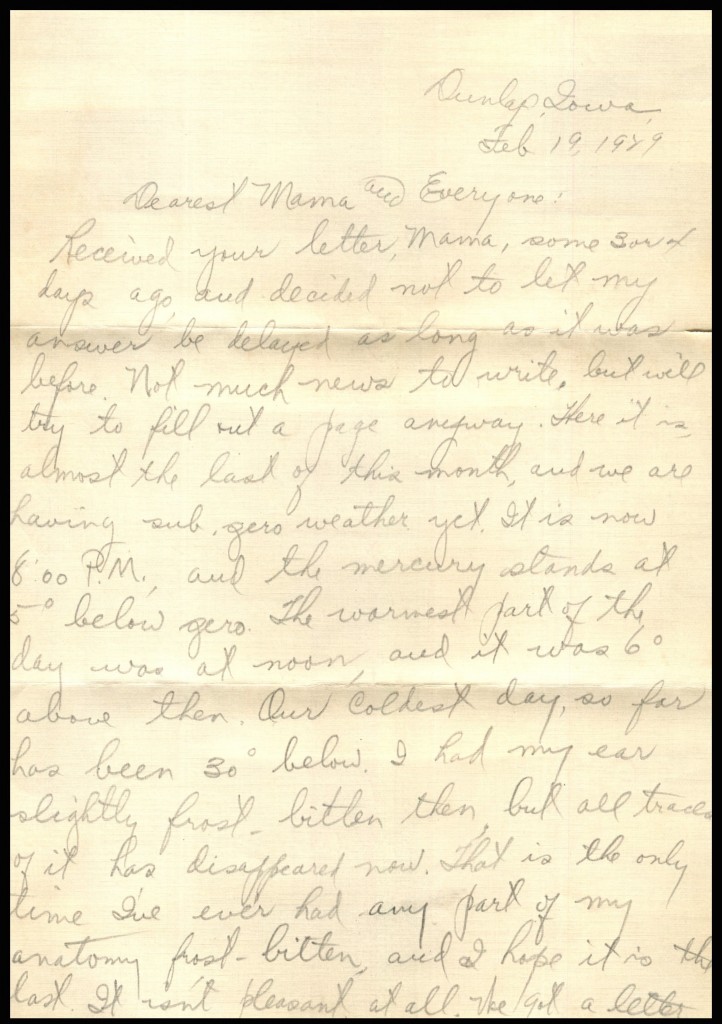 Dunlap, Iowa,
Feb 19, 1929
Dearest Mama and Everyone:
Received your letter, Mama, some 3 or 4
days ago, and decided not to let my
answer be delayed as long as it was
before. Not much news to write, but will
try to fill out a page anyway. Here it is,
almost the last of this month, and we are
having sub-zero weather yet. It is now
8:00 P.M., and the mercury stands at
5° below zero. The warmest part of the
day was at noon, and it was 6°
above then. Our coldest day, so far
has been 30° below. I had my ear
slightly frost-bitten then, but all traces
of it has disappeared now. That is the only
time I've ever had any part of my
anatomy frost-bitten, and I hope it is the
last. It isn't pleasant at all. We got a letter